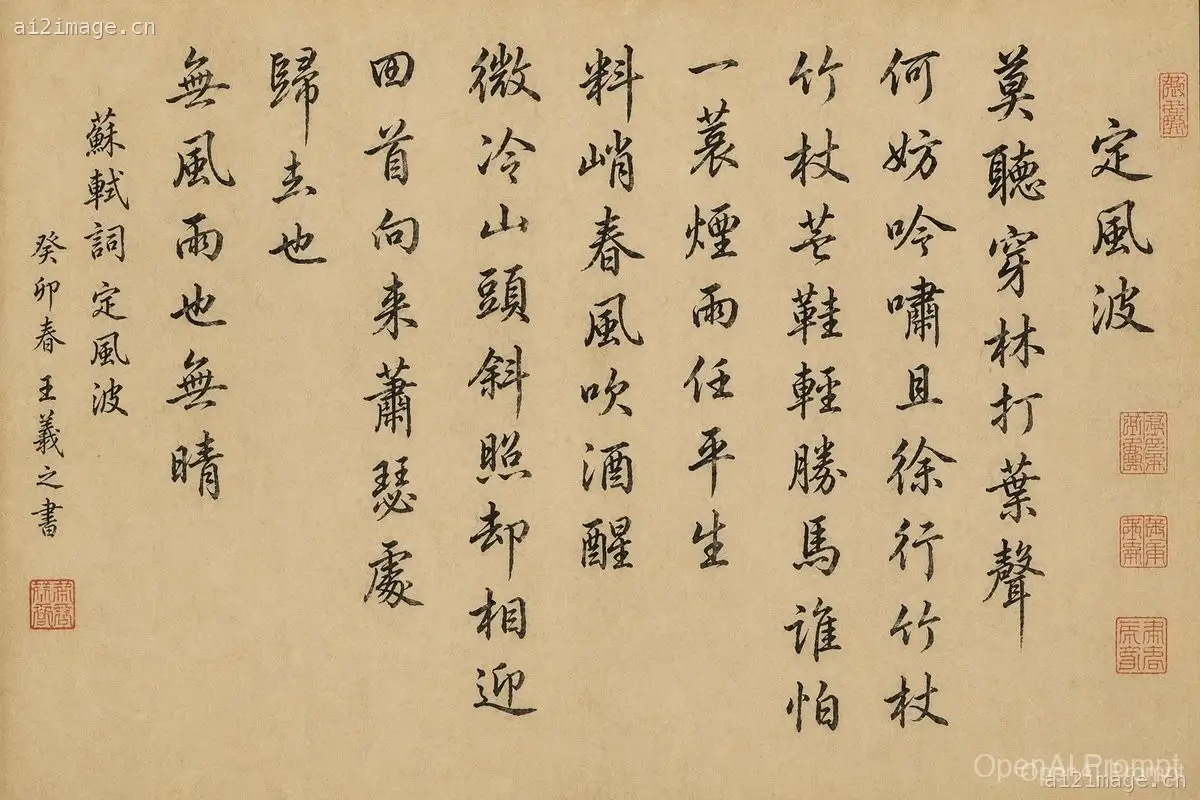 定風波
莫聽穿林打葉聲
何妨吟嘯且徐行竹杖
竹杖芒鞋輕勝馬誰怕
一蓑煙雨任平生
料峭春風吹酒醒
微冷山頭斜照却相迎
回首向来蕭瑟處
歸去也
無風雨也無晴
蘇軾詞定風波
癸卯春王義之書
ai2image.cn
OpenAI Prompt
ai2image.cn